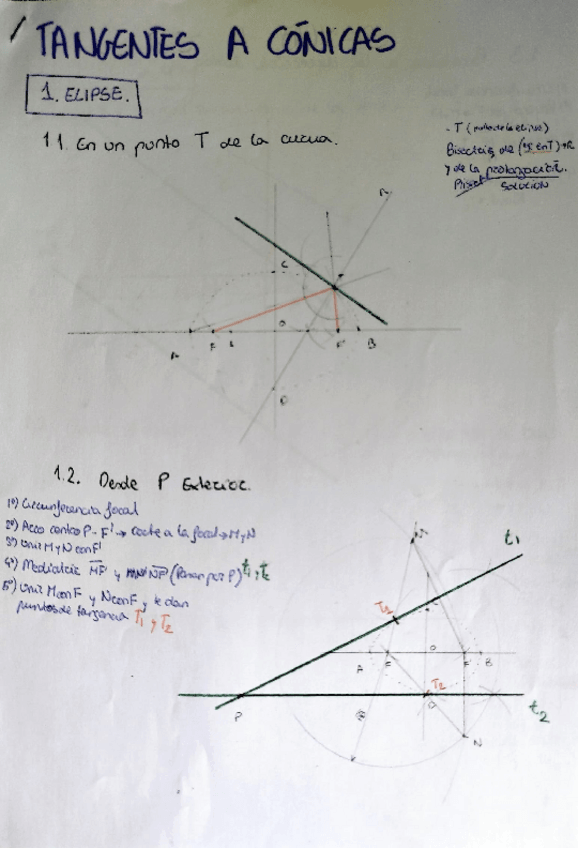 TANGENTES A CÓNICAS
1. ELIPSE.
1.1. En un punto T de la curva.
- T (punto de la elipse)
Bisectriz de
y de la prolongación.
SOLUCIÓN
C
O
A F F' B
D
1.2. Desde P Exterior.
1º) Circunferencia focal
2º) Arco centro P - F' → corte a la focal → M y N
3º) Unir M y N con F'
4º) Mediatriz MF' y NF' (Pasar por P) t1 y t2
5º) Unir M con F y N con F y te dan
puntos de tangencia T1 y T2
M
t1
T2
O
A F F' B
T2
P
D
t2
N